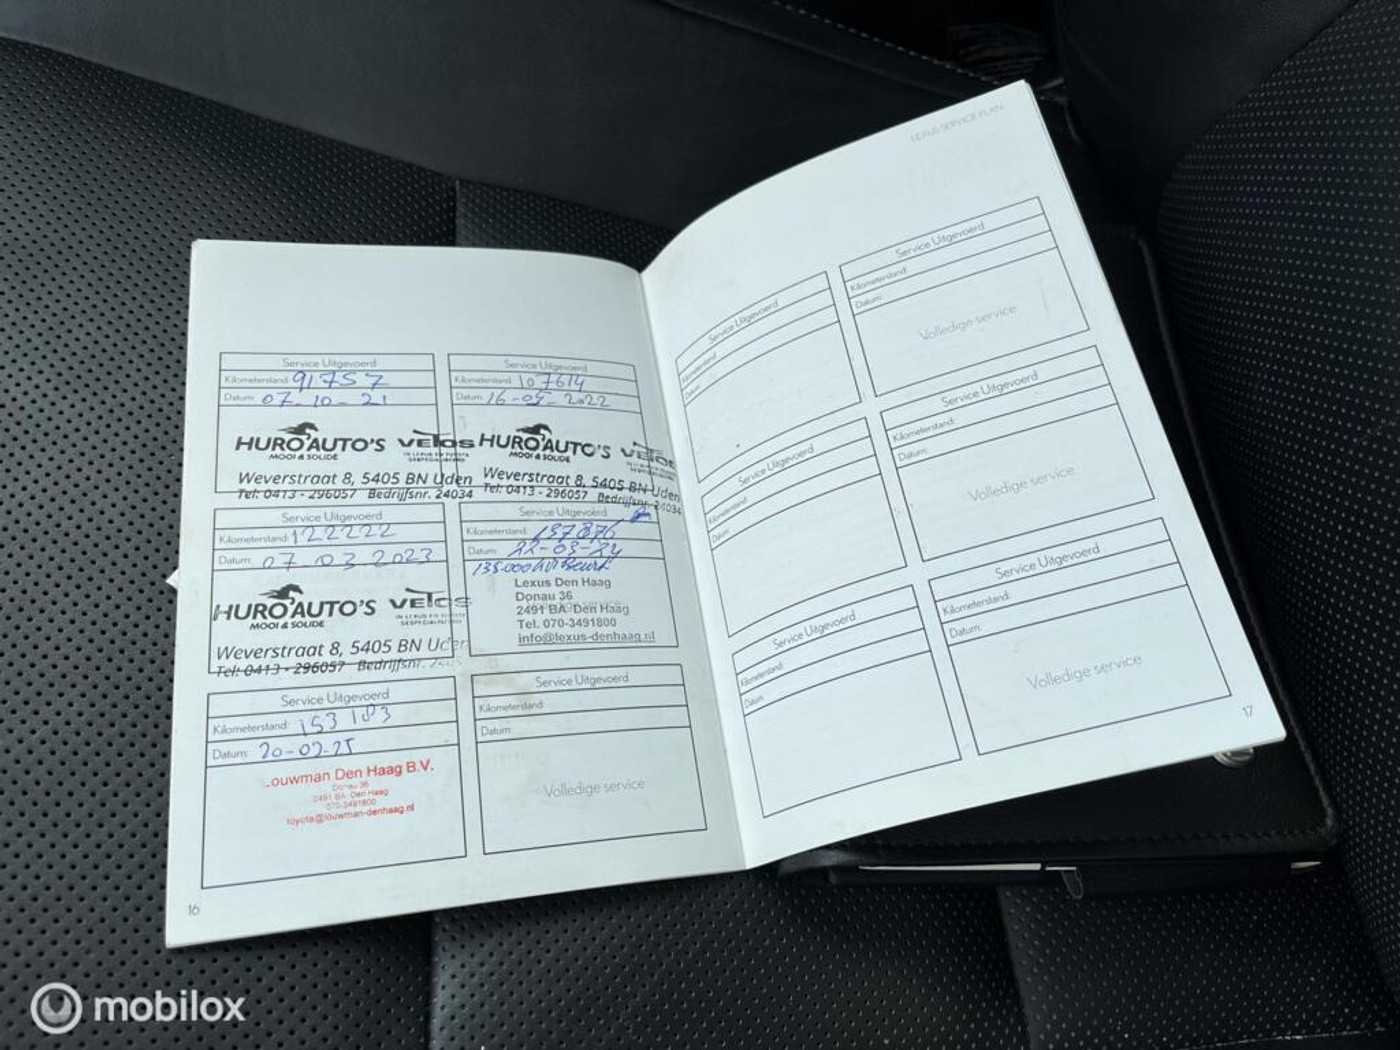 Service Uitgevoerd
Kilometerstand: 91757
Datum: 07-10-21
HURO AUTO'S VETOS
MOOI & SOLIDE
IN LEXUS EN TOYOTA
GESPECIALISEERD
Weverstraat 8, 5405 BN Uden
Tel: 0413 - 296057 Bedrijfsnr. 24034
Service Uitgevoerd
Kilometerstand: 107614
Datum: 2022
HURO AUTO'S VETOS
MOOI & SOLIDE
Weverstraat 8, 5405 BN Uden
Tel: 0413 - 296057 Bedrijfsnr. 24034
Service Uitgevoerd
Kilometerstand: 122222
Datum: 07-03-2023
HURO AUTO'S VETOS
MOOI & SOLIDE
Weverstraat 8, 5405 BN Uden
Tel: 0413 - 296057 Bedrijfsnr.
Service Uitgevoerd
Kilometerstand: 137876
Datum: 22-03-24
135.000 Beurt
Lexus Den Haag
Donau 36
2491 BA Den Haag
Tel. 070-3491800
info@lexus-denhaag.nl
Service Uitgevoerd
Kilometerstand: 153183
Datum: 20-02-25
Louwman Den Haag B.V.
Donau 36
2491 BA Den Haag
070-3491800
toyota@louwman-denhaag.nl
Service Uitgevoerd
Kilometerstand:
Datum:
Volledige service
16
LEXUS SERVICE PLAN
Service Uitgevoerd
Kilometerstand:
Datum:
Service Uitgevoerd
Kilometerstand:
Datum:
Volledige service
Service Uitgevoerd
Kilometerstand:
Datum:
Service Uitgevoerd
Kilometerstand:
Datum:
Volledige service
Service Uitgevoerd
Kilometerstand:
Datum:
Service Uitgevoerd
Kilometerstand:
Datum:
Volledige service
17
mobilox